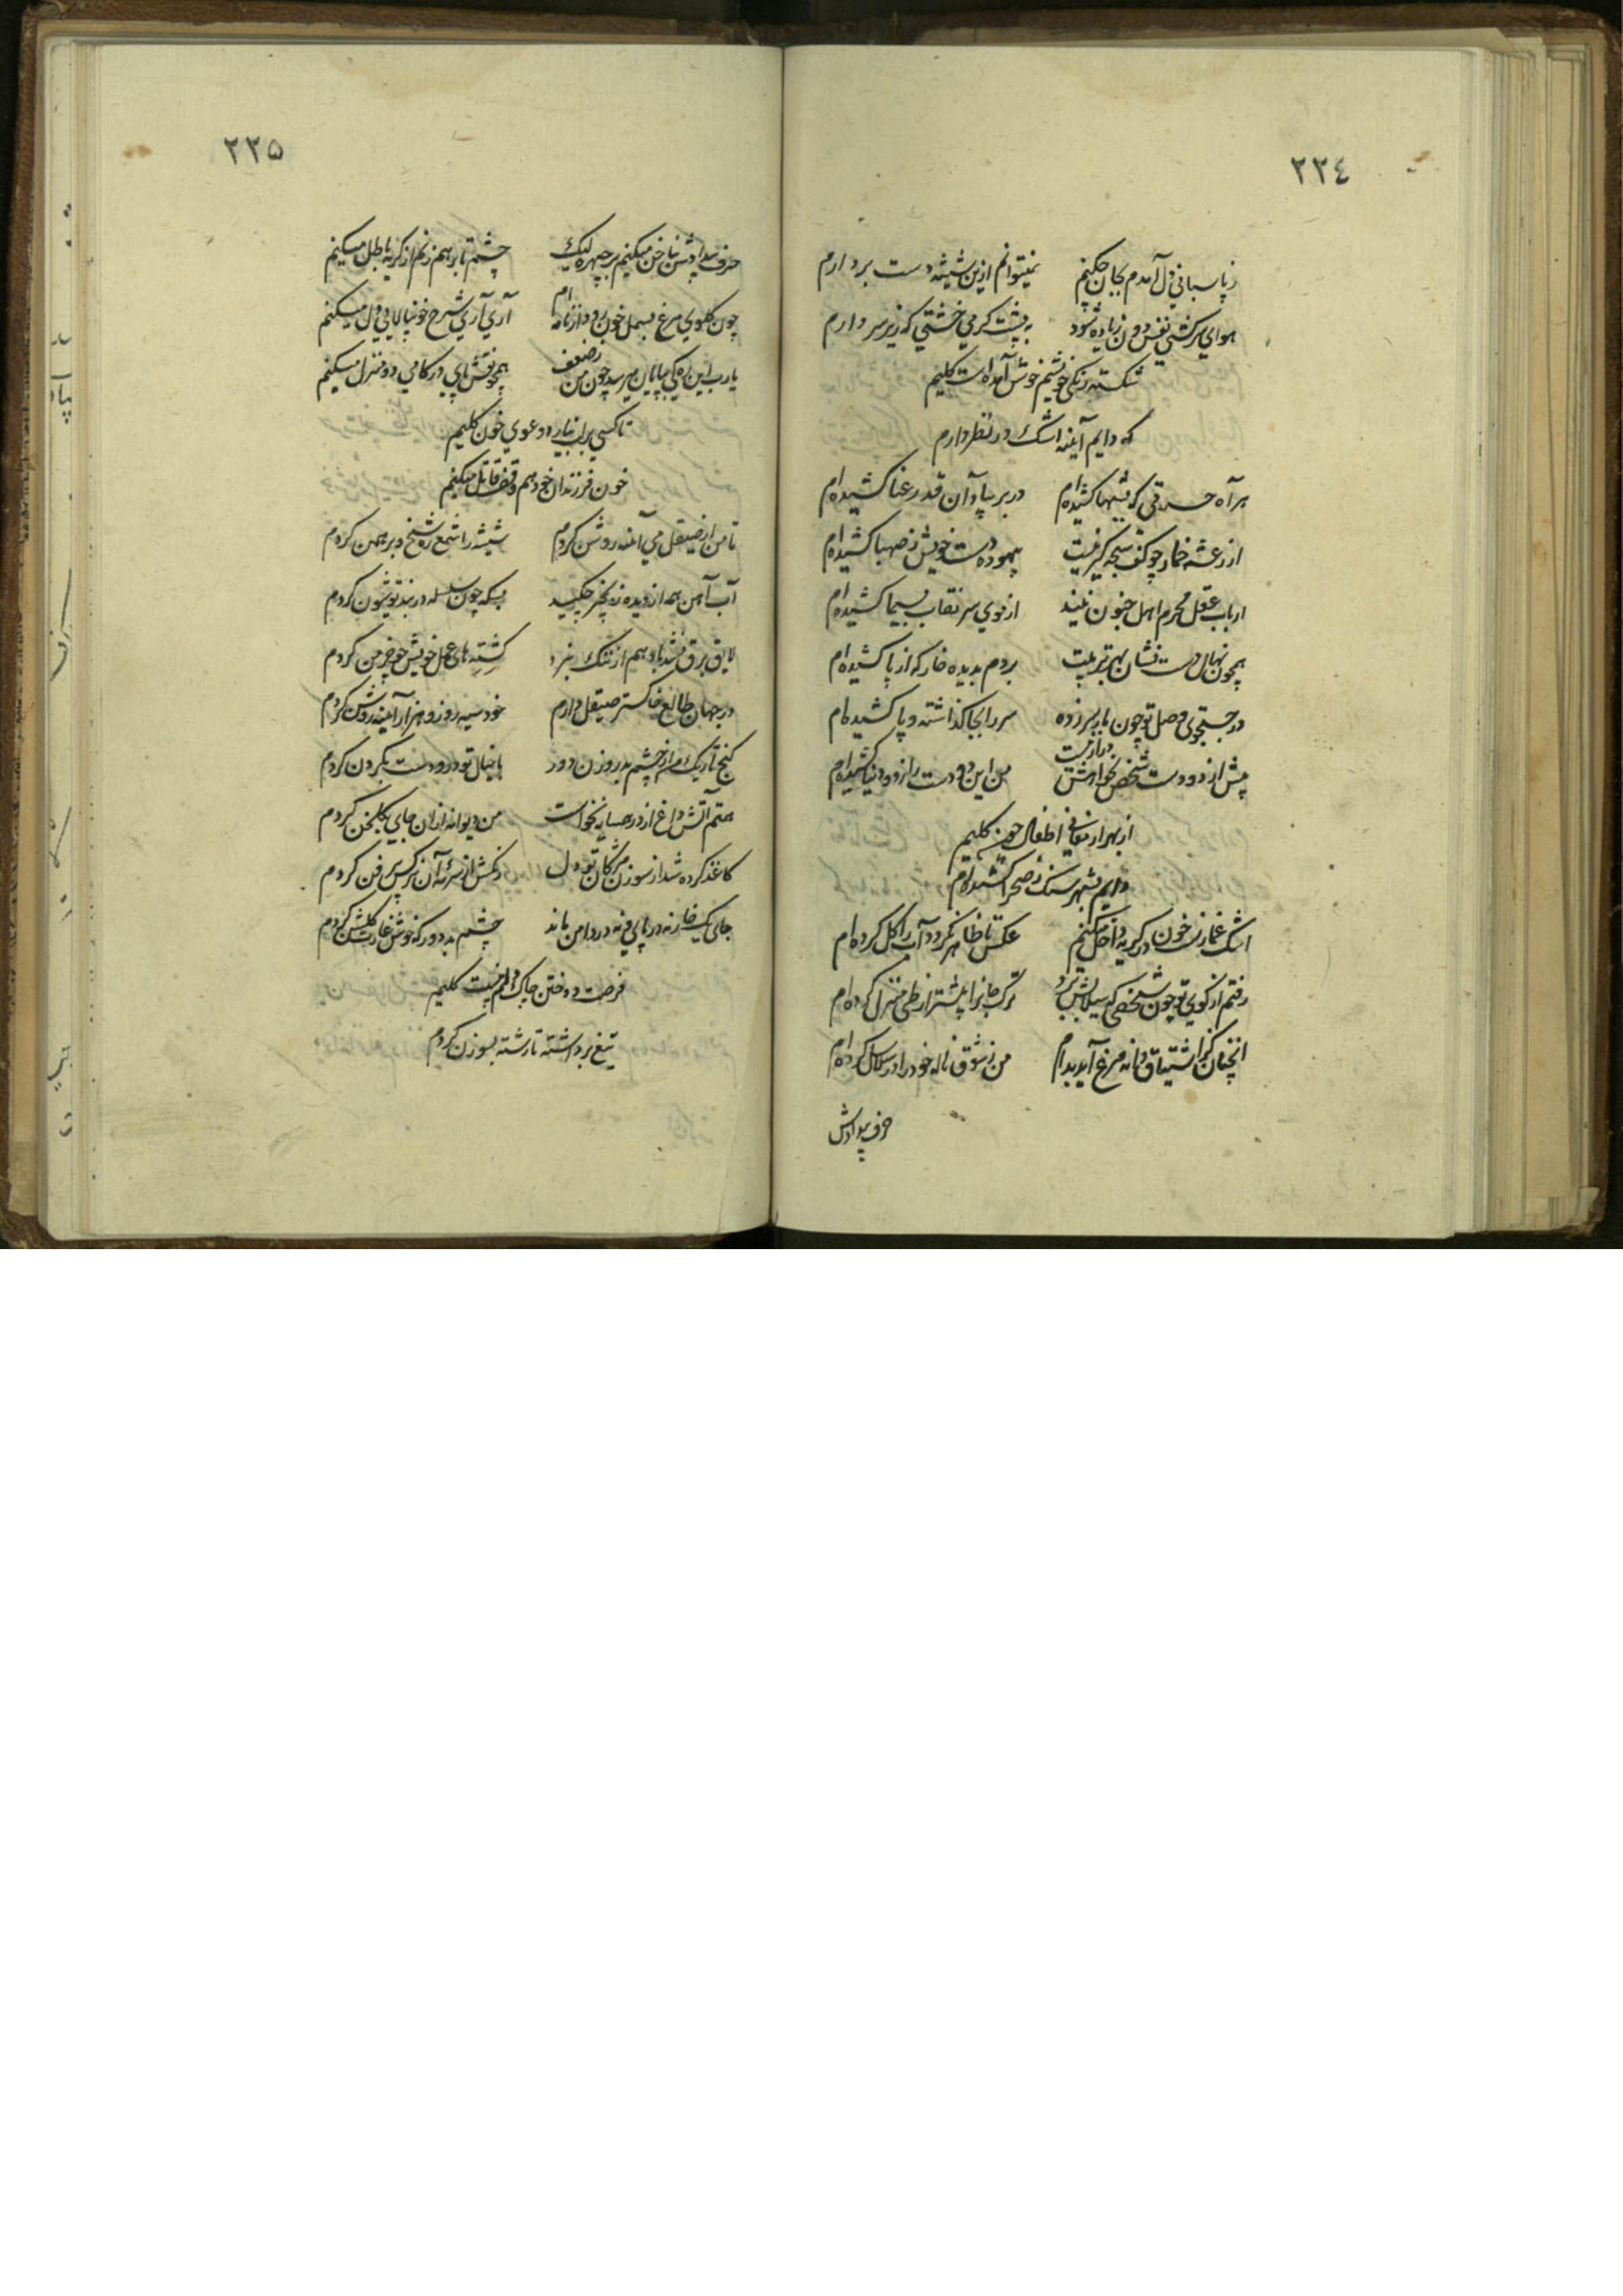 ٢٢٤
ز پاسبانی دل آمدم بجان چکنم نمیتوانم ازین شیشه دست بردارم
هوای سرکشی نفس دون زیاده شود به پشت گرمی خشتی که زیر سر دارم
شکسته رنگی خویشم خوش آمده است کلیم
که دایم آینه اشک در نظر دارم
هر آه حسرتی که بشبها کشیده‌ام در بر بیاد آن قد رعنا کشیده‌ام
از رعشه خمار چو کف سبحه گیر نیست بیهوده دست خویش ز صهبا کشیده‌ام
ارباب عقل محرم اهل جنون نیند از موی سر نقاب بسیما کشیده‌ام
همچون نهال دست نشان بهر تربیت بردم بدیده خار که از پا کشیده‌ام
در جستجوی وصل تو چون بار سر زده سر را بجا گذاشته و پا کشیده‌ام
پیش از دو دست شخص نخواهش دراز نیست من این دو دست را ز دو دنیا کشیده‌ام
از بهر ارمغانی اطفال چون کلیم
دایم بشهر سنگ ز صحرا کشیده‌ام
اشک غماز است خون در گریه داخل میکنم عکس تا ظاهر نگردد آب را گل کرده‌ام
رفتم از کوی تو چون شخصی که سیلابش برد ترک جانرا پیشتر از طی منزل کرده‌ام
آنچنان کز اشتیاق دانه مرغ آید بدام من ز شوق ناله خود را در سلاسل کرده‌ام
حرف بیدادش
٢٢٥
حرف بیدادش بناخن میکنم بر چهره لیک چشم تا بر هم زنم از گریه باطل میکنم
چون گلوی مرغ بسمل خون رود از نامه‌ام آری آری شرح خونپالایی دل میکنم
یارب این ره کی بپایان میرسد چون من ز ضعف همچو نقش پای در گامی دو منزل میکنم
تا کسی بر لب نیارد دعوی خون کلیم
خون فرزندان خود هم وقف قاتل میکنم
تا من از صیقل می آینه روشن کردم شیشه را شمع ره شیخ و برهمن کردم
آب آهن همه از دیده زنجیر چکید بسکه چون سلسله در بند تو شیون کردم
لایق برق نشد باد هم از ننگ نبرد کشته‌های عمل خویش چو خرمن کردم
در جهان طالع خاکستر صیقل دارم خود سیه روز و هزار آینه روشن کردم
کنج تاریک مرا چشم بد روزن دور با خیال تو درو دست بگردن کردم
همتم آتش داغ از در همسایه نخواست من دیوانه ازان جای بگلخن کردم
کاغذ گرده شد از سوزن مژگان تو دل رنگش از سرمه آن نرگس پر فن کردم
جای یک خار نه در پای و نه در دامن ماند چشم بد دور که خوش غارت گلشن کردم
فرصت دوختن چاک دلم نیست کلیم
تیغ برداشته تا رشته بسوزن کردم